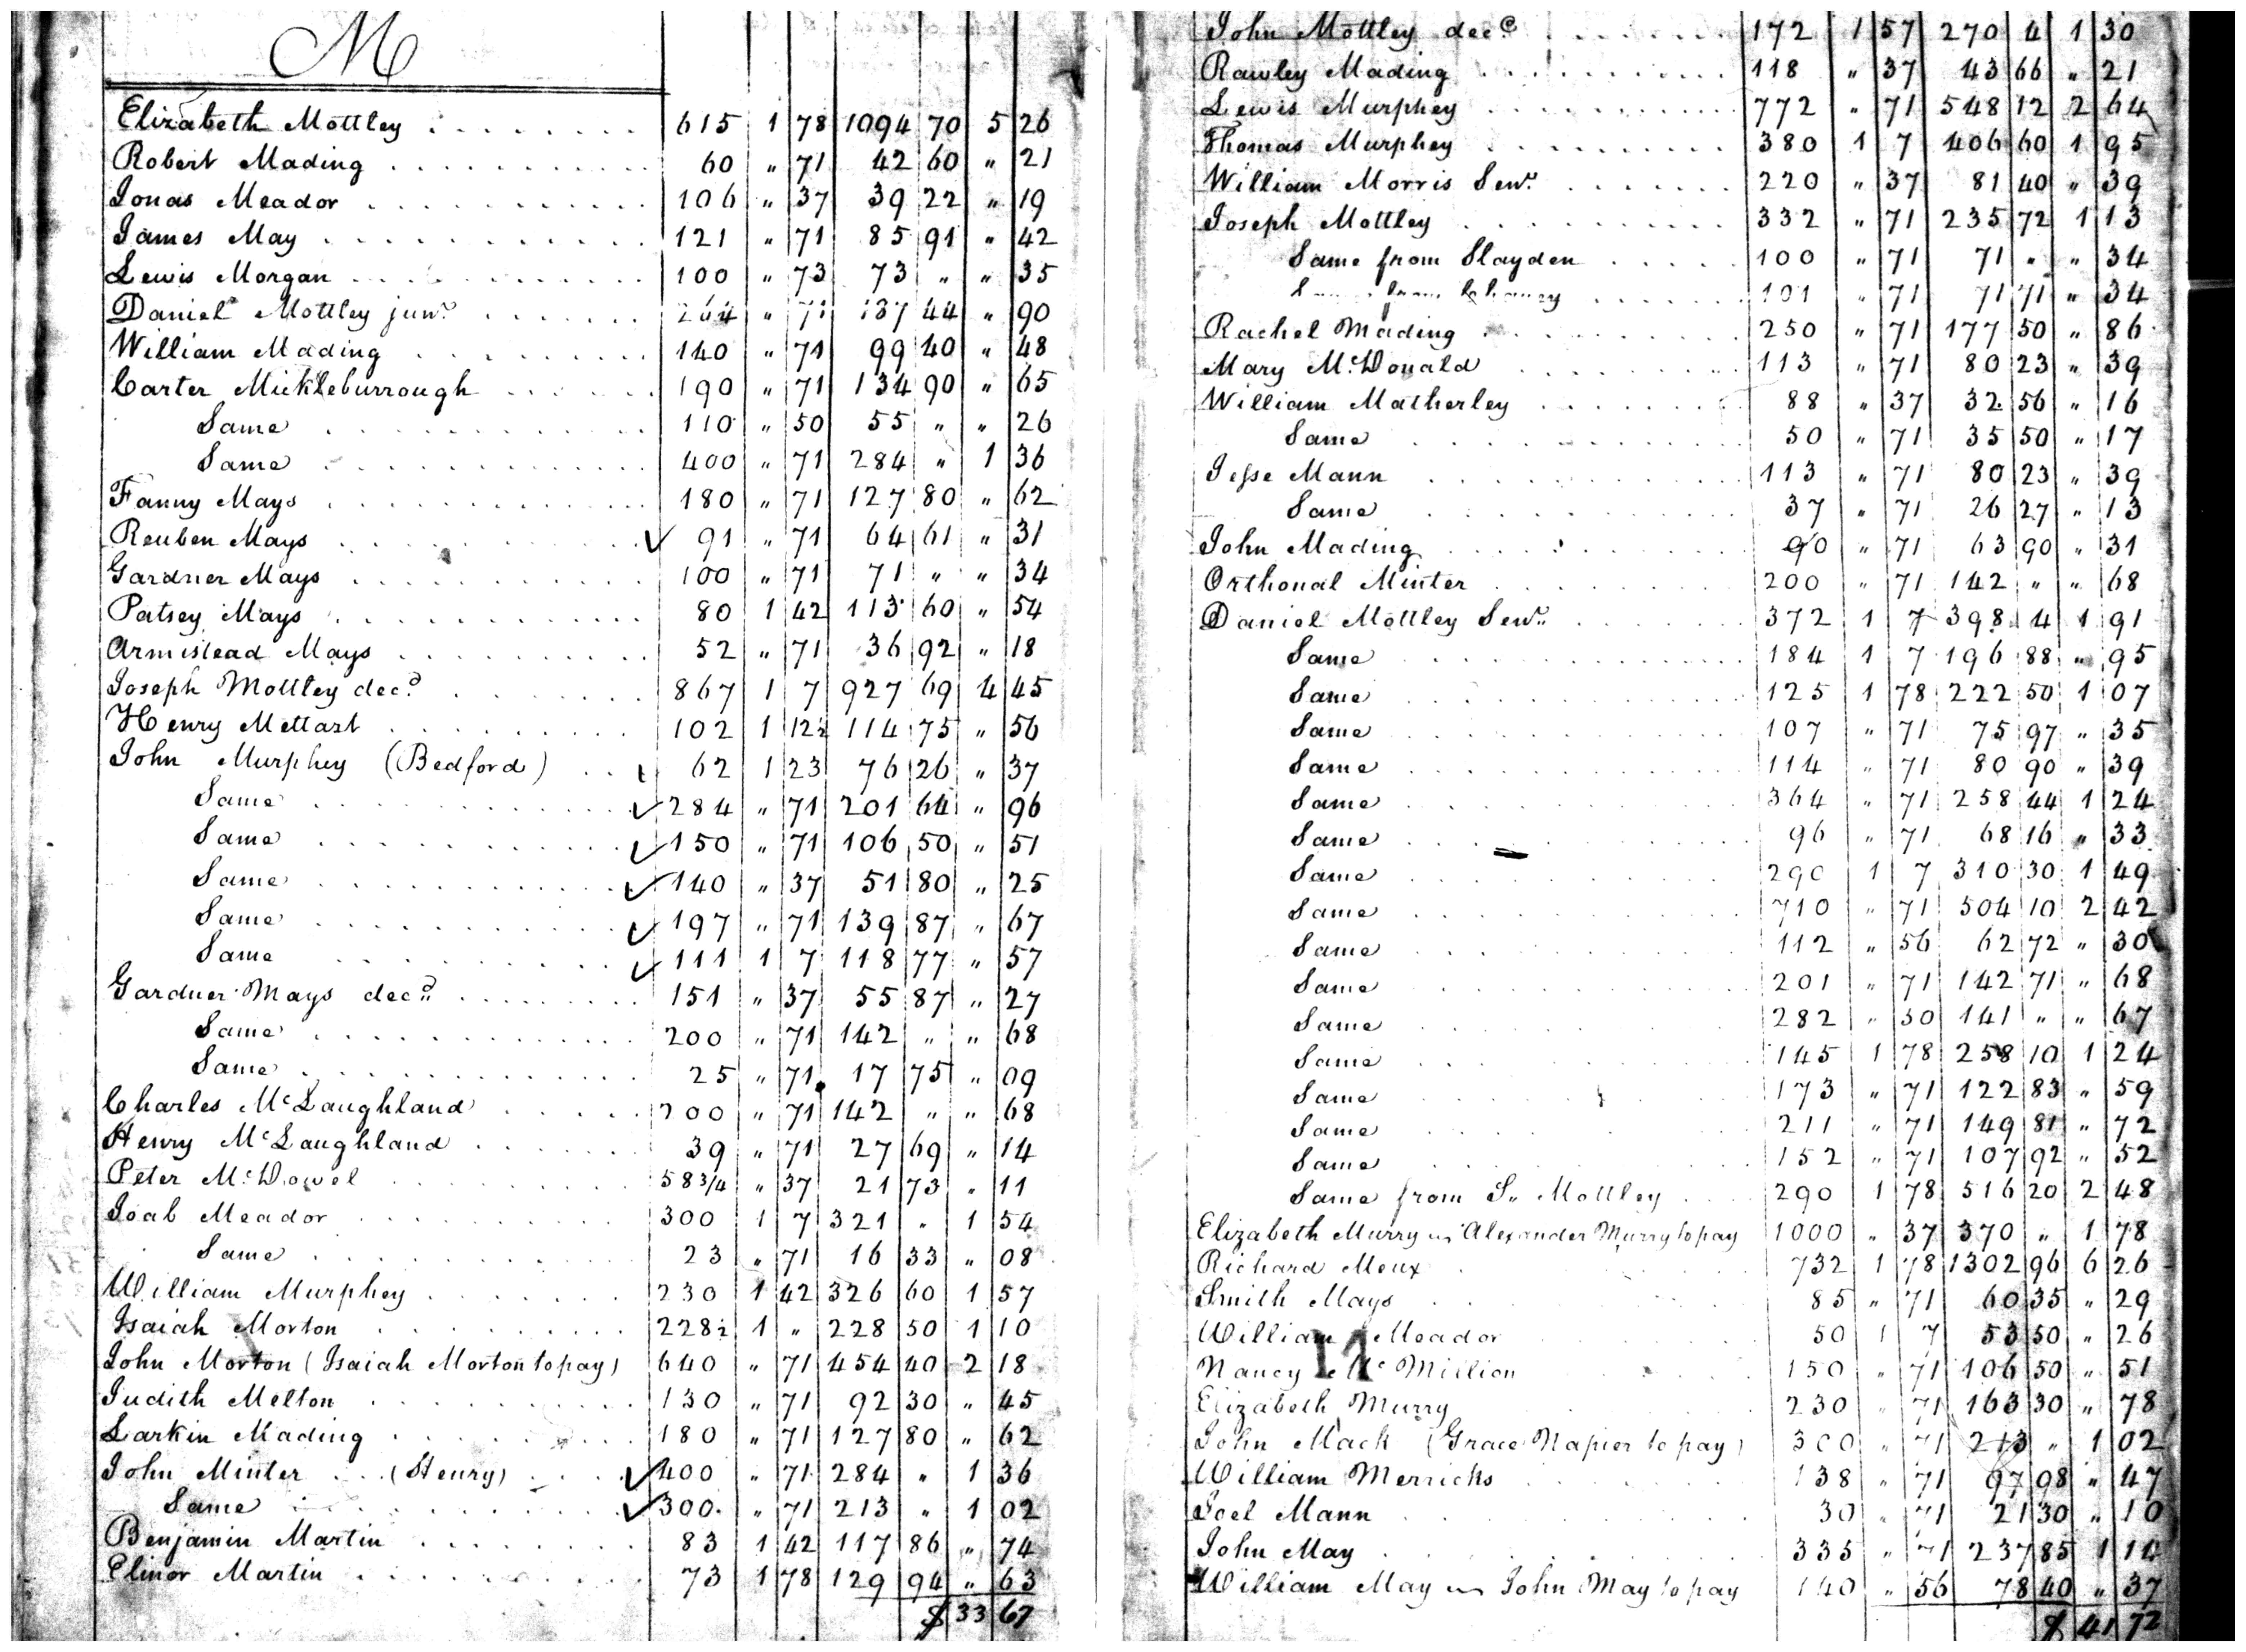 M
Elizabeth Mottley 615 1 78 1094 70 5 26
Robert Mading 60 " 71 42 60 " 21
Jonas Meador 106 " 37 39 22 " 19
James May 121 " 71 85 91 " 42
Lewis Morgan 100 " 73 73 " " 35
Daniel Mottley junr. 264 " 71 187 44 " 90
William Mading 140 " 71 99 40 " 48
Carter Mickleburrough 190 " 71 134 90 " 65
Same 110 " 50 55 " " 26
Same 400 " 71 284 " 1 36
Fanny Mays 180 " 71 127 80 " 62
Reuben Mays ✓ 91 " 71 64 61 " 31
Gardner Mays 100 " 71 71 " " 34
Patsey Mays 80 1 42 113 60 " 54
Armistead Mays 52 " 71 36 92 " 18
Joseph Mottley decd. 867 1 7 927 69 4 45
Henry Mettart 102 1 12½ 114 75 " 56
John Murphey (Bedford) ✓ 62 1 23 76 26 " 37
Same ✓ 284 " 71 201 64 " 96
Same ✓ 150 " 71 106 50 " 51
Same ✓ 140 " 37 51 80 " 25
Same ✓ 197 " 71 139 87 " 67
Same ✓ 111 1 7 118 77 " 57
Gardner Mays decd. 151 " 37 55 87 " 27
Same 200 " 71 142 " " 68
Same 25 " 71 17 75 " 09
Charles McLaughland 200 " 71 142 " " 68
Henry McLaughland 39 " 71 27 69 " 14
Peter McDowel 58 3/4 " 37 21 73 " 11
Joab Meador 300 1 7 321 " 1 54
Same 23 " 71 16 33 " 08
William Murphey 230 1 42 326 60 1 57
Isaiah Morton 228½ 1 " 228 50 1 10
John Morton (Isaiah Morton to pay) 640 " 71 454 40 2 18
Judith Melton 130 " 71 92 30 " 45
Larkin Mading 180 " 71 127 80 " 62
John Minter (Henry) ✓ 400 " 71 284 " 1 36
Same ✓ 300 " 71 213 " 1 02
Benjamin Martin 83 1 42 117 86 " 74
Elinor Martin 73 1 78 129 94 " 63
$ 33 67
John Mottley decd. 172 1 57 270 4 1 30
Rawley Mading 118 " 37 43 66 " 21
Lewis Murphey 772 " 71 548 12 2 64
Thomas Murphey 380 1 7 406 60 1 95
William Morris Senr. 220 " 37 81 40 " 39
Joseph Mottley 332 " 71 235 72 1 13
Same from Slayden 100 " 71 71 " " 34
101 " 71 71 71 " 34
Rachel Mading 250 " 71 177 50 " 86
Mary McDonald 113 " 71 80 23 " 39
William Matherley 88 " 37 32 56 " 16
Same 50 " 71 35 50 " 17
Jesse Mann 113 " 71 80 23 " 39
Same 37 " 71 26 27 " 13
John Mading 90 " 71 63 90 " 31
Orthonal Minter 200 " 71 142 " " 68
Daniel Mottley Senr. 372 1 7 398 4 1 91
Same 184 1 7 196 88 " 95
Same 125 1 78 222 50 1 07
Same 107 " 71 75 97 " 35
Same 114 " 71 80 90 " 39
Same 364 " 71 258 44 1 24
Same 96 " 71 68 16 " 33
Same 290 1 7 310 30 1 49
Same 710 " 71 504 10 2 42
Same 112 " 56 62 72 " 30
Same 201 " 71 142 71 " 68
Same 282 " 50 141 " " 67
Same 145 1 78 258 10 1 24
Same 173 " 71 122 83 " 59
Same 211 " 71 149 81 " 72
Same 152 " 71 107 92 " 52
Same from S. Mottley 290 1 78 516 20 2 48
Elizabeth Murry Alexander Murry to pay 1000 " 37 370 " 1 78
Richard Meux 732 1 78 1302 96 6 26
Smith Mays 85 " 71 60 35 " 29
William Meador 50 1 7 53 50 " 26
Nancy McMillion 150 " 71 106 50 " 51
Elizabeth Murry 230 " 71 163 30 " 78
John Mack (Grace Napier to pay) 300 " 71 213 " 1 02
William Merricks 138 " 71 97 98 " 47
Joel Mann 30 " 71 21 30 " 10
John May 335 " 71 237 85 1 14
William May John May to pay 140 " 56 78 40 " 37
$ 41 72